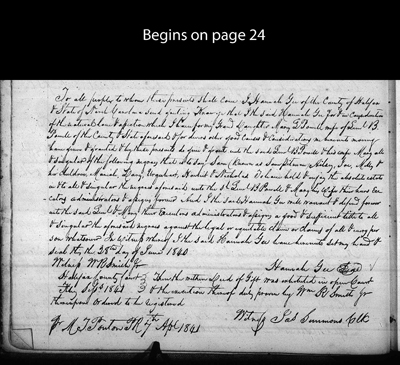 Begins on page 24
To all people to whom these presents shall come I Hannah Gee of the County of Halifax
& State of North Carolina send greeting Know ye that I the said Hannah Gee for & in Consideration
of the natural love & affection which I have for my Grand Daughter Mary B Powell wife of Lemuel B
Powell of the County & State aforesaid & for divers other good Causes & Considerations me hereunto moving
have given & granted & by these presents do give & grant unto the said Lemuel B Powell & his wife Mary all
& singular of the following negroes that is to say Sam (known as Sam Pitman) Ashley, Jim, Milly &
her Children, Mariah, Davy, Elizabeth, Harriet & Nicholas To have hold & enjoy the absolute estate
in & to all & singular the negroes aforesaid unto the sd Lemuel B Powell & Mary his wife their heirs Exe-
cutors administrators & assigns forever And I the said Hannah Gee will warrant & defend forever
unto the said Lemuel & Mary their Executors administrators & assigns a good & sufficient title to all
& singular the aforesaid negroes against the legal or equitable claim or claims of all & every per
son whatsoever In witness whereof I the said Hannah Gee have hereunto set my hand &
seal this the 28th day of June 1840
Witness W R Smith Jr
Hannah Gee Seal
Halifax County Court
Thus the within deed of Gift was exhibited in open Court
& the execution thereof duly proven by Wm R Smith Jr
whereupon Ordered to be registered
Witness Jas Simmons Clk
M T Ponton PR 7th Apl 1841